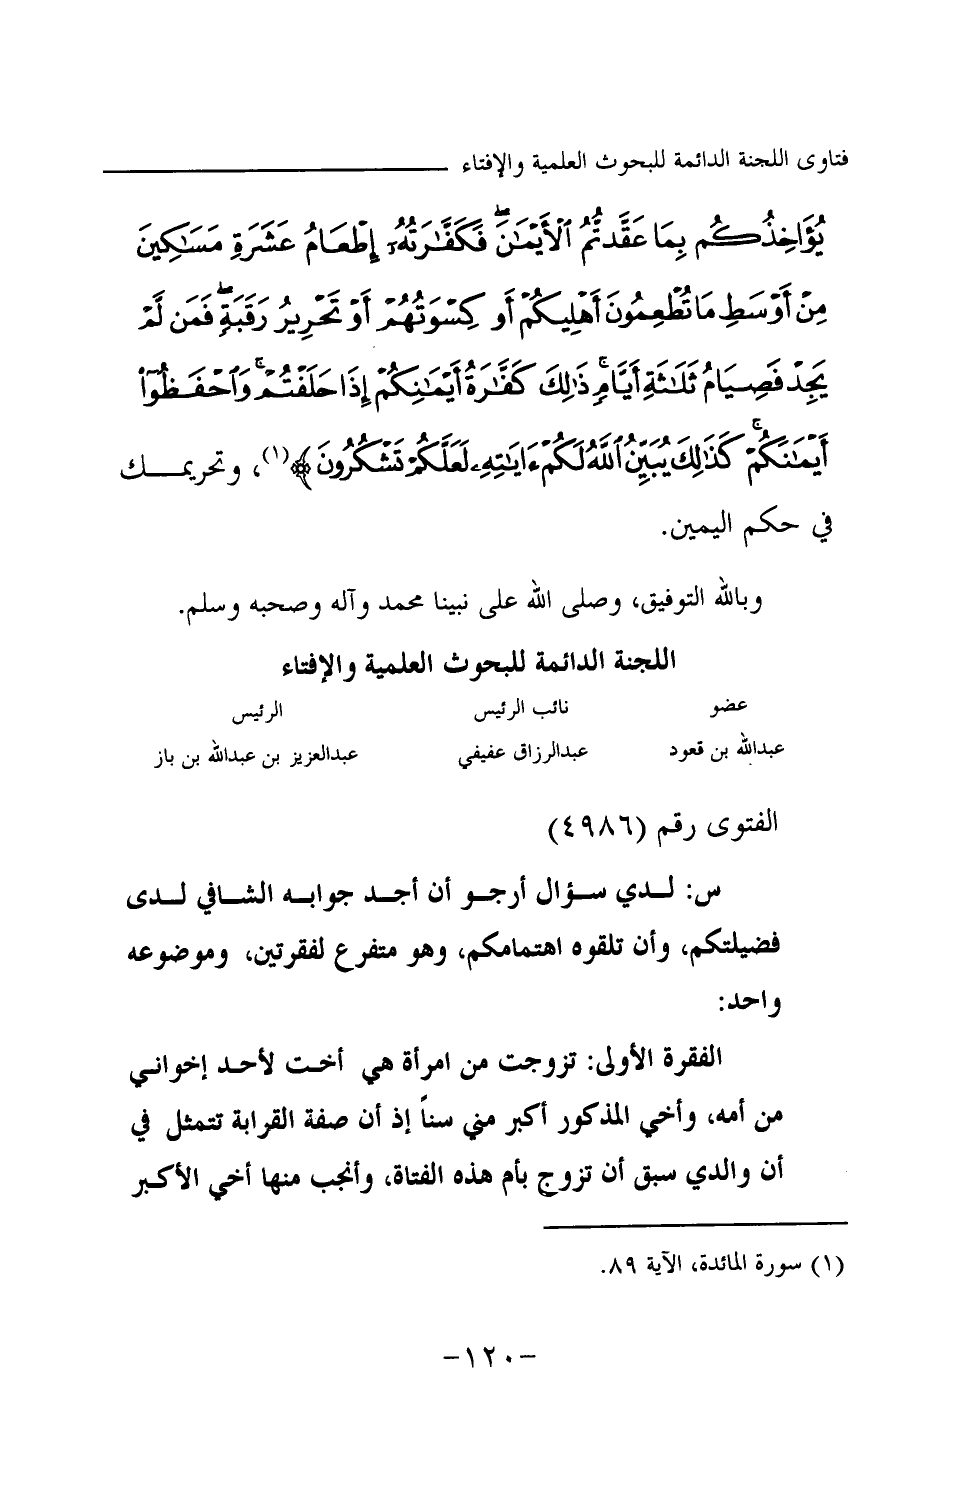 فتاوى اللجنة الدائمة للبحوث العلمية والإفتاء
يُؤَاخِذُكُم بِمَا عَقَّدتُّمُ ٱلْأَيْمَٰنَ ۖ فَكَفَّٰرَتُهُۥٓ إِطْعَامُ عَشَرَةِ مَسَٰكِينَ
مِنْ أَوْسَطِ مَا تُطْعِمُونَ أَهْلِيكُمْ أَوْ كِسْوَتُهُمْ أَوْ تَحْرِيرُ رَقَبَةٍ ۖ فَمَن لَّمْ
يَجِدْ فَصِيَامُ ثَلَٰثَةِ أَيَّامٍ ۚ ذَٰلِكَ كَفَّٰرَةُ أَيْمَٰنِكُمْ إِذَا حَلَفْتُمْ ۚ وَٱحْفَظُوٓا۟
أَيْمَٰنَكُمْ ۚ كَذَٰلِكَ يُبَيِّنُ ٱللَّهُ لَكُمْ ءَايَٰتِهِۦ لَعَلَّكُمْ تَشْكُرُونَ ﴾(١)، وتحريمك
في حكم اليمين.
وبالله التوفيق، وصلى الله على نبينا محمد وآله وصحبه وسلم.
اللجنة الدائمة للبحوث العلمية والإفتاء
عضو نائب الرئيس الرئيس
عبدالله بن قعود عبدالرزاق عفيفي عبدالعزيز بن عبدالله بن باز
الفتوى رقم (٤٩٨٦)
س: لدي سؤال أرجو أن أجد جوابه الشافي لدى
فضيلتكم، وأن تلقوه اهتمامكم، وهو متفرع لفقرتين، وموضوعه
واحد:
الفقرة الأولى: تزوجت من امرأة هي أخت لأحد إخواني
من أمه، وأخي المذكور أكبر مني سناً إذ أن صفة القرابة تتمثل في
أن والدي سبق أن تزوج بأم هذه الفتاة، وأنجب منها أخي الأكبر
(١) سورة المائدة، الآية ٨٩.
-١٢٠-